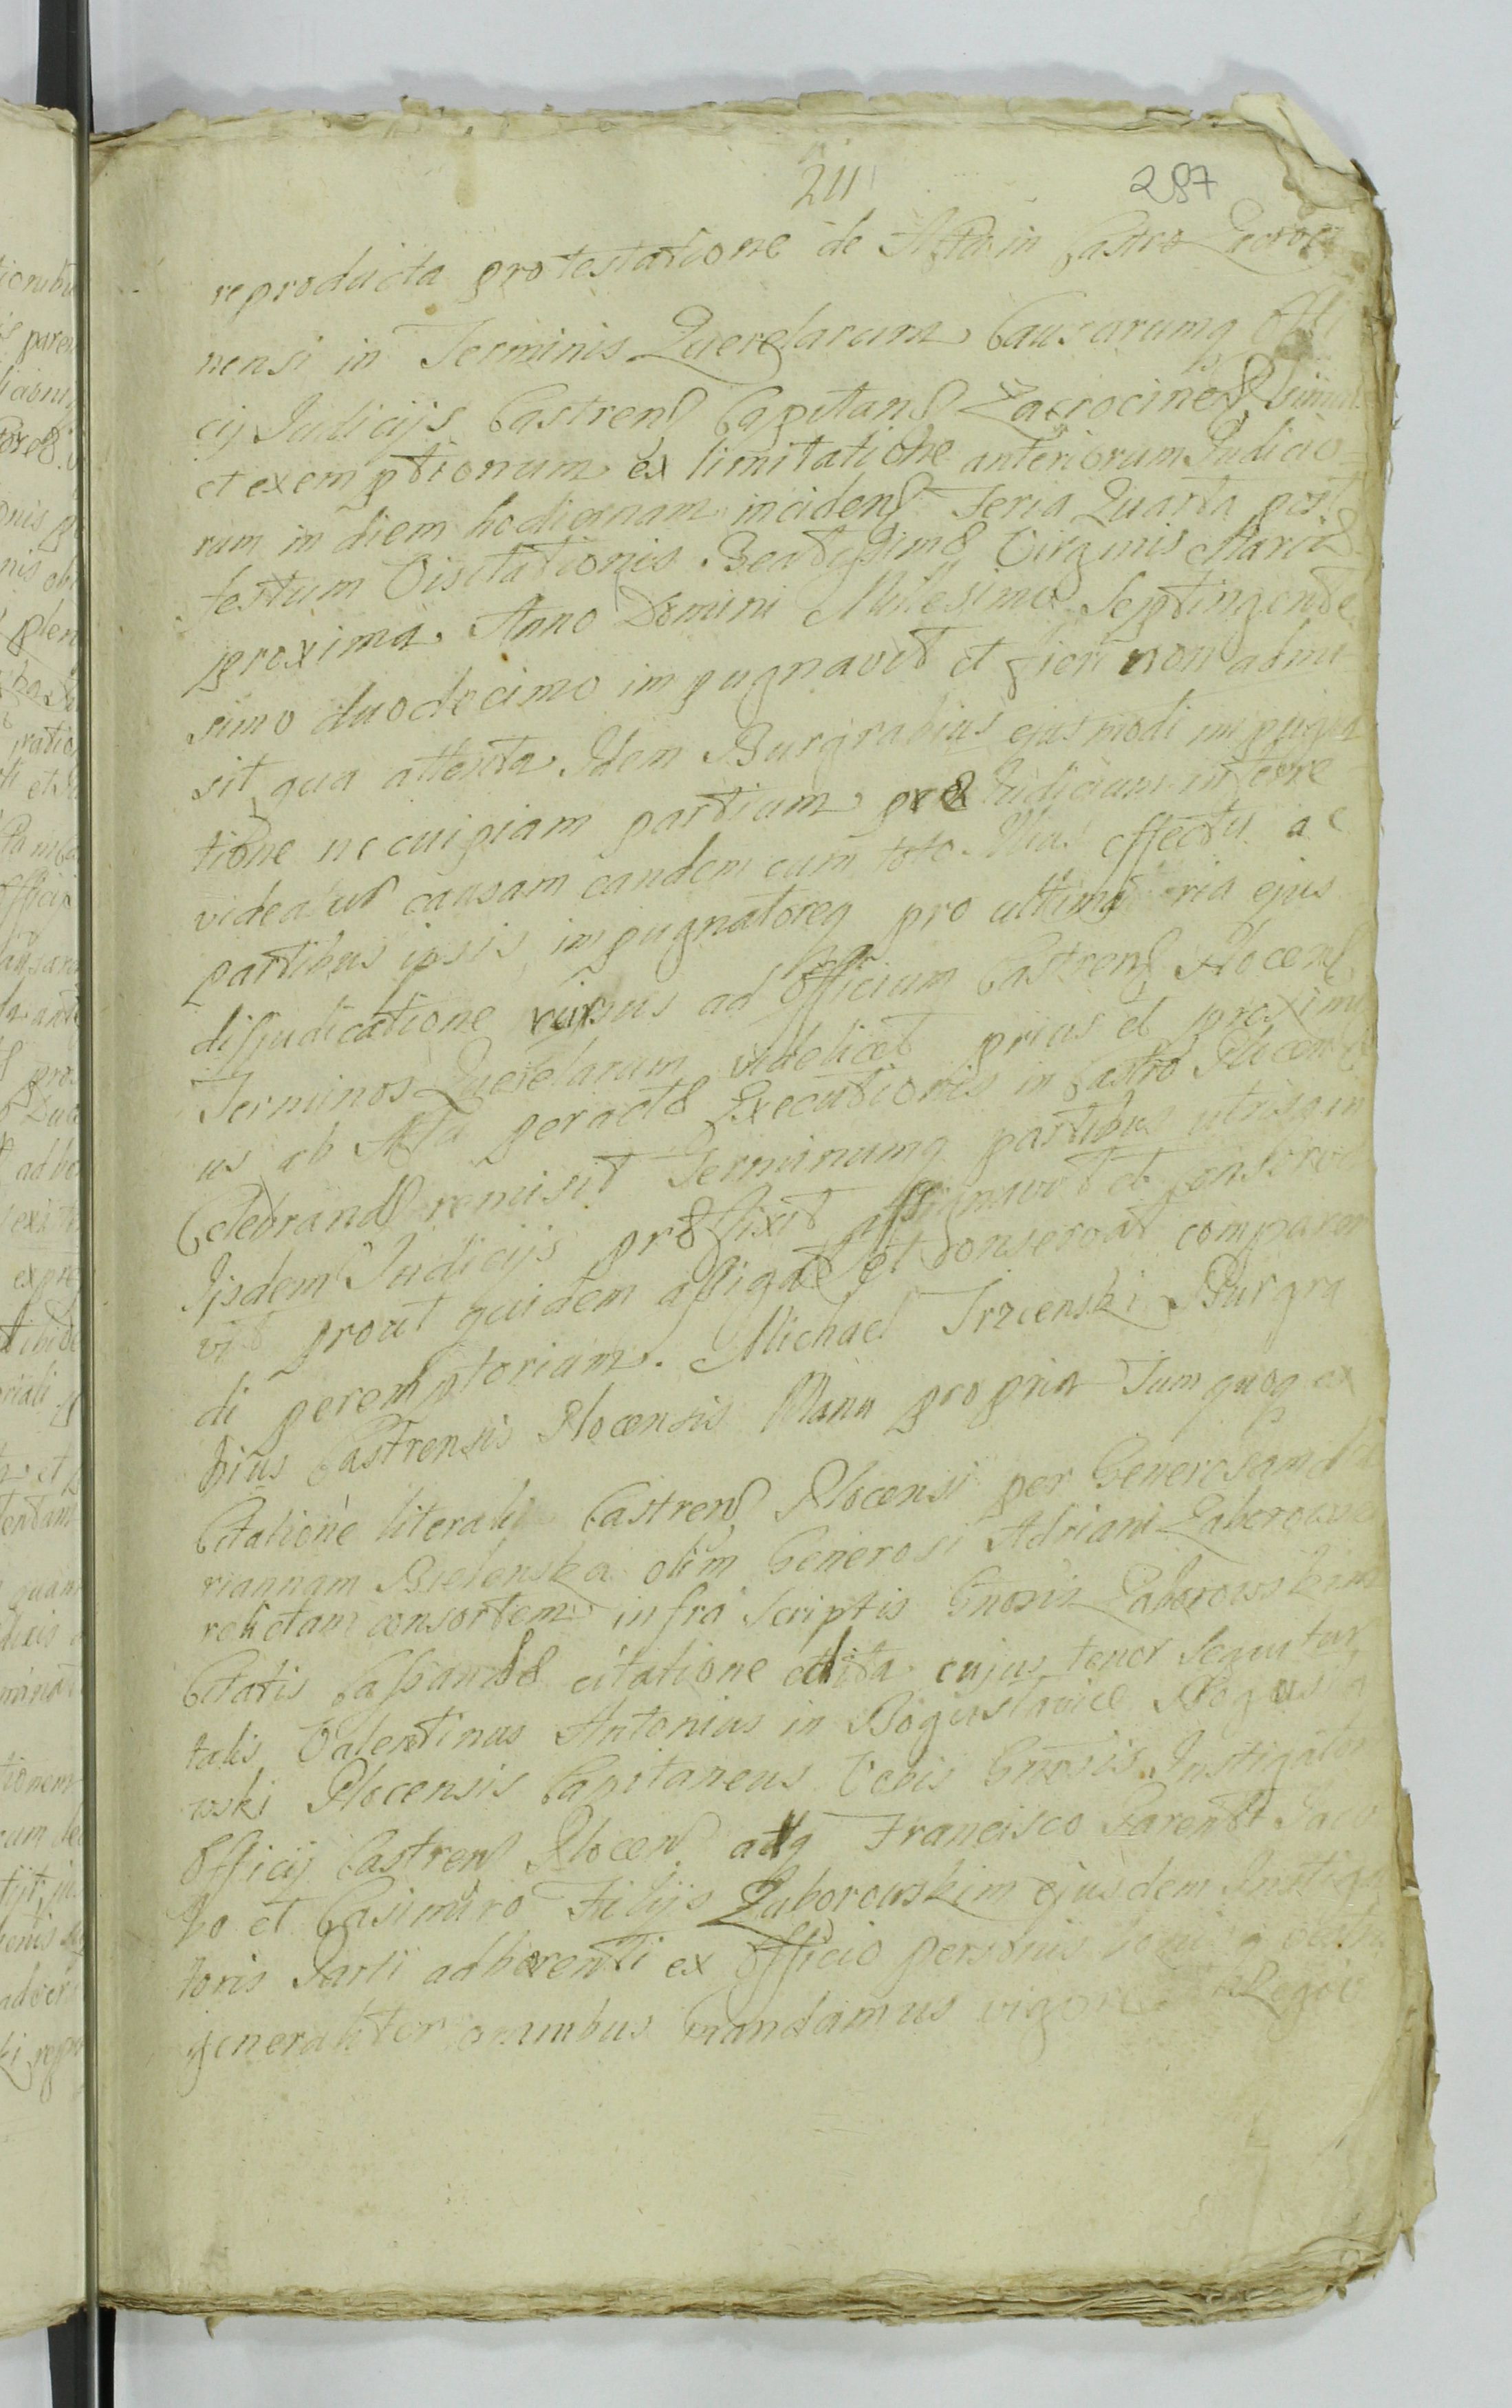 211
287
reproducta protestatione de Acta in Castro Zacroci
nensi in Terminis Querelarum Causarumq Offi
cij Judicijs Castrens Capitans Zacrocinens simul
et exemptionum ex limitatione anteriorum Judicio
rum in diem hodiernam incidens Feria Quarta post
festum Visitationis Beatissimæ Virginis Mariæ
proxima Anno Domini Milesimo Septingente
simo duodecimo impugnavit et fieri non admi
sit, qua attenta Idem Burgrabius ejusmodi impugna
tione ne cuipiam partium præ Judicium inferre
videatur causam eandem cum toto effectu ac
partibus ipsis impugnatoreq pro ultima ria ejus
disjudicatione rursus ad Officium Castrens Plocens
Terminos Querelarum videlicet prias et proximi
us ab Acta peractæ Executionis in Castro Plocens
Celebrand remisit Terminumq partibus utrisq in
Ijsdem Judicijs præfixit assignavit et conserva
vit prout quidem assigat et conservat comparen
di peremptorium. Michael Trzcenski Burgra
bius Castrensis Plocensis Manu propria Tum quoq ex
Citatione literali Castrens Plocensi per Generosam Ma
riannam Bielenska olim Generosi Adriani Zaborowski
relictam consortem infra scriptis Gnosis Zaborowskim
Citatis Cassandæ citatione edita cujus tenor sequitur
talis Valentinus Antonius in Boguslawice Bogusla
wski Plocensis Capitaneus Vobis Gnosis Instigatori
Officij Castrens Plocens atq Francisco Parenti Jaco
bo et Casimiro Filijs Zaborowskim ejusdem Instiga
toris Parti adhærenti ex Officio personis bonisq vestris
generaliter omnibus mandamus vigore Regia